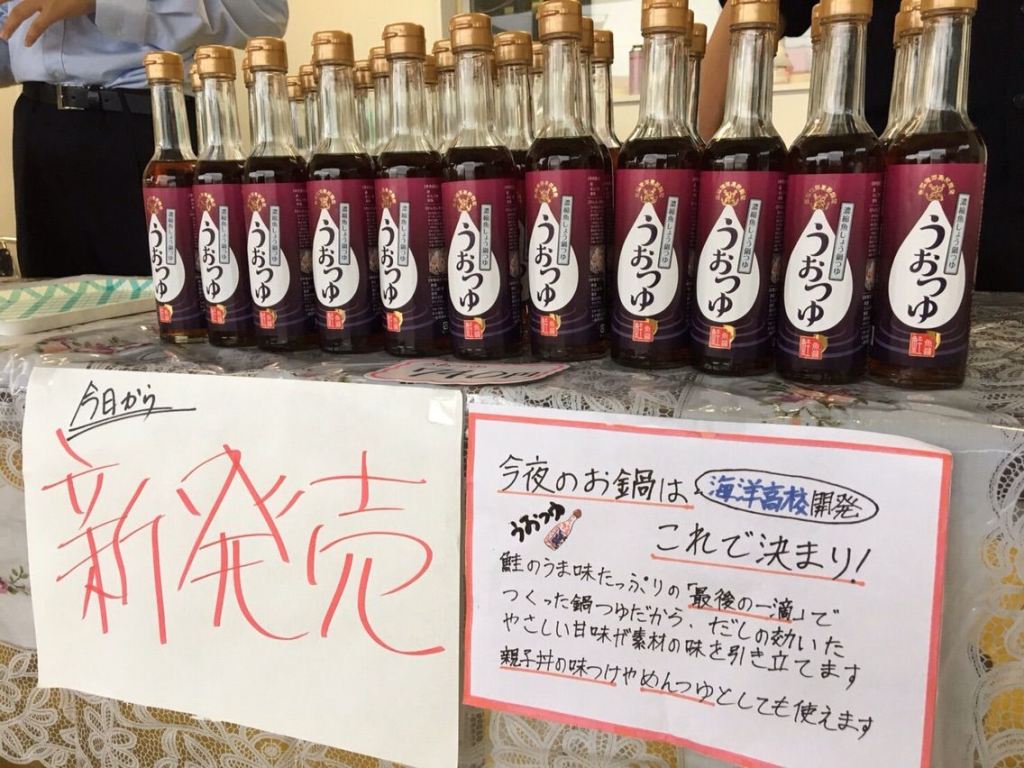 濃縮魚しょう鍋つゆ
うおつゆ
今日から
新発売
今夜のお鍋は
海洋高校開発
うおつゆ
これで決まり!
鮭のうま味たっぷりの「最後の一滴」で
つくった鍋つゆだから、だしの効いた
やさしい甘味が素材の味を引き立てます
親子丼の味つけやめんつゆとしても使えます